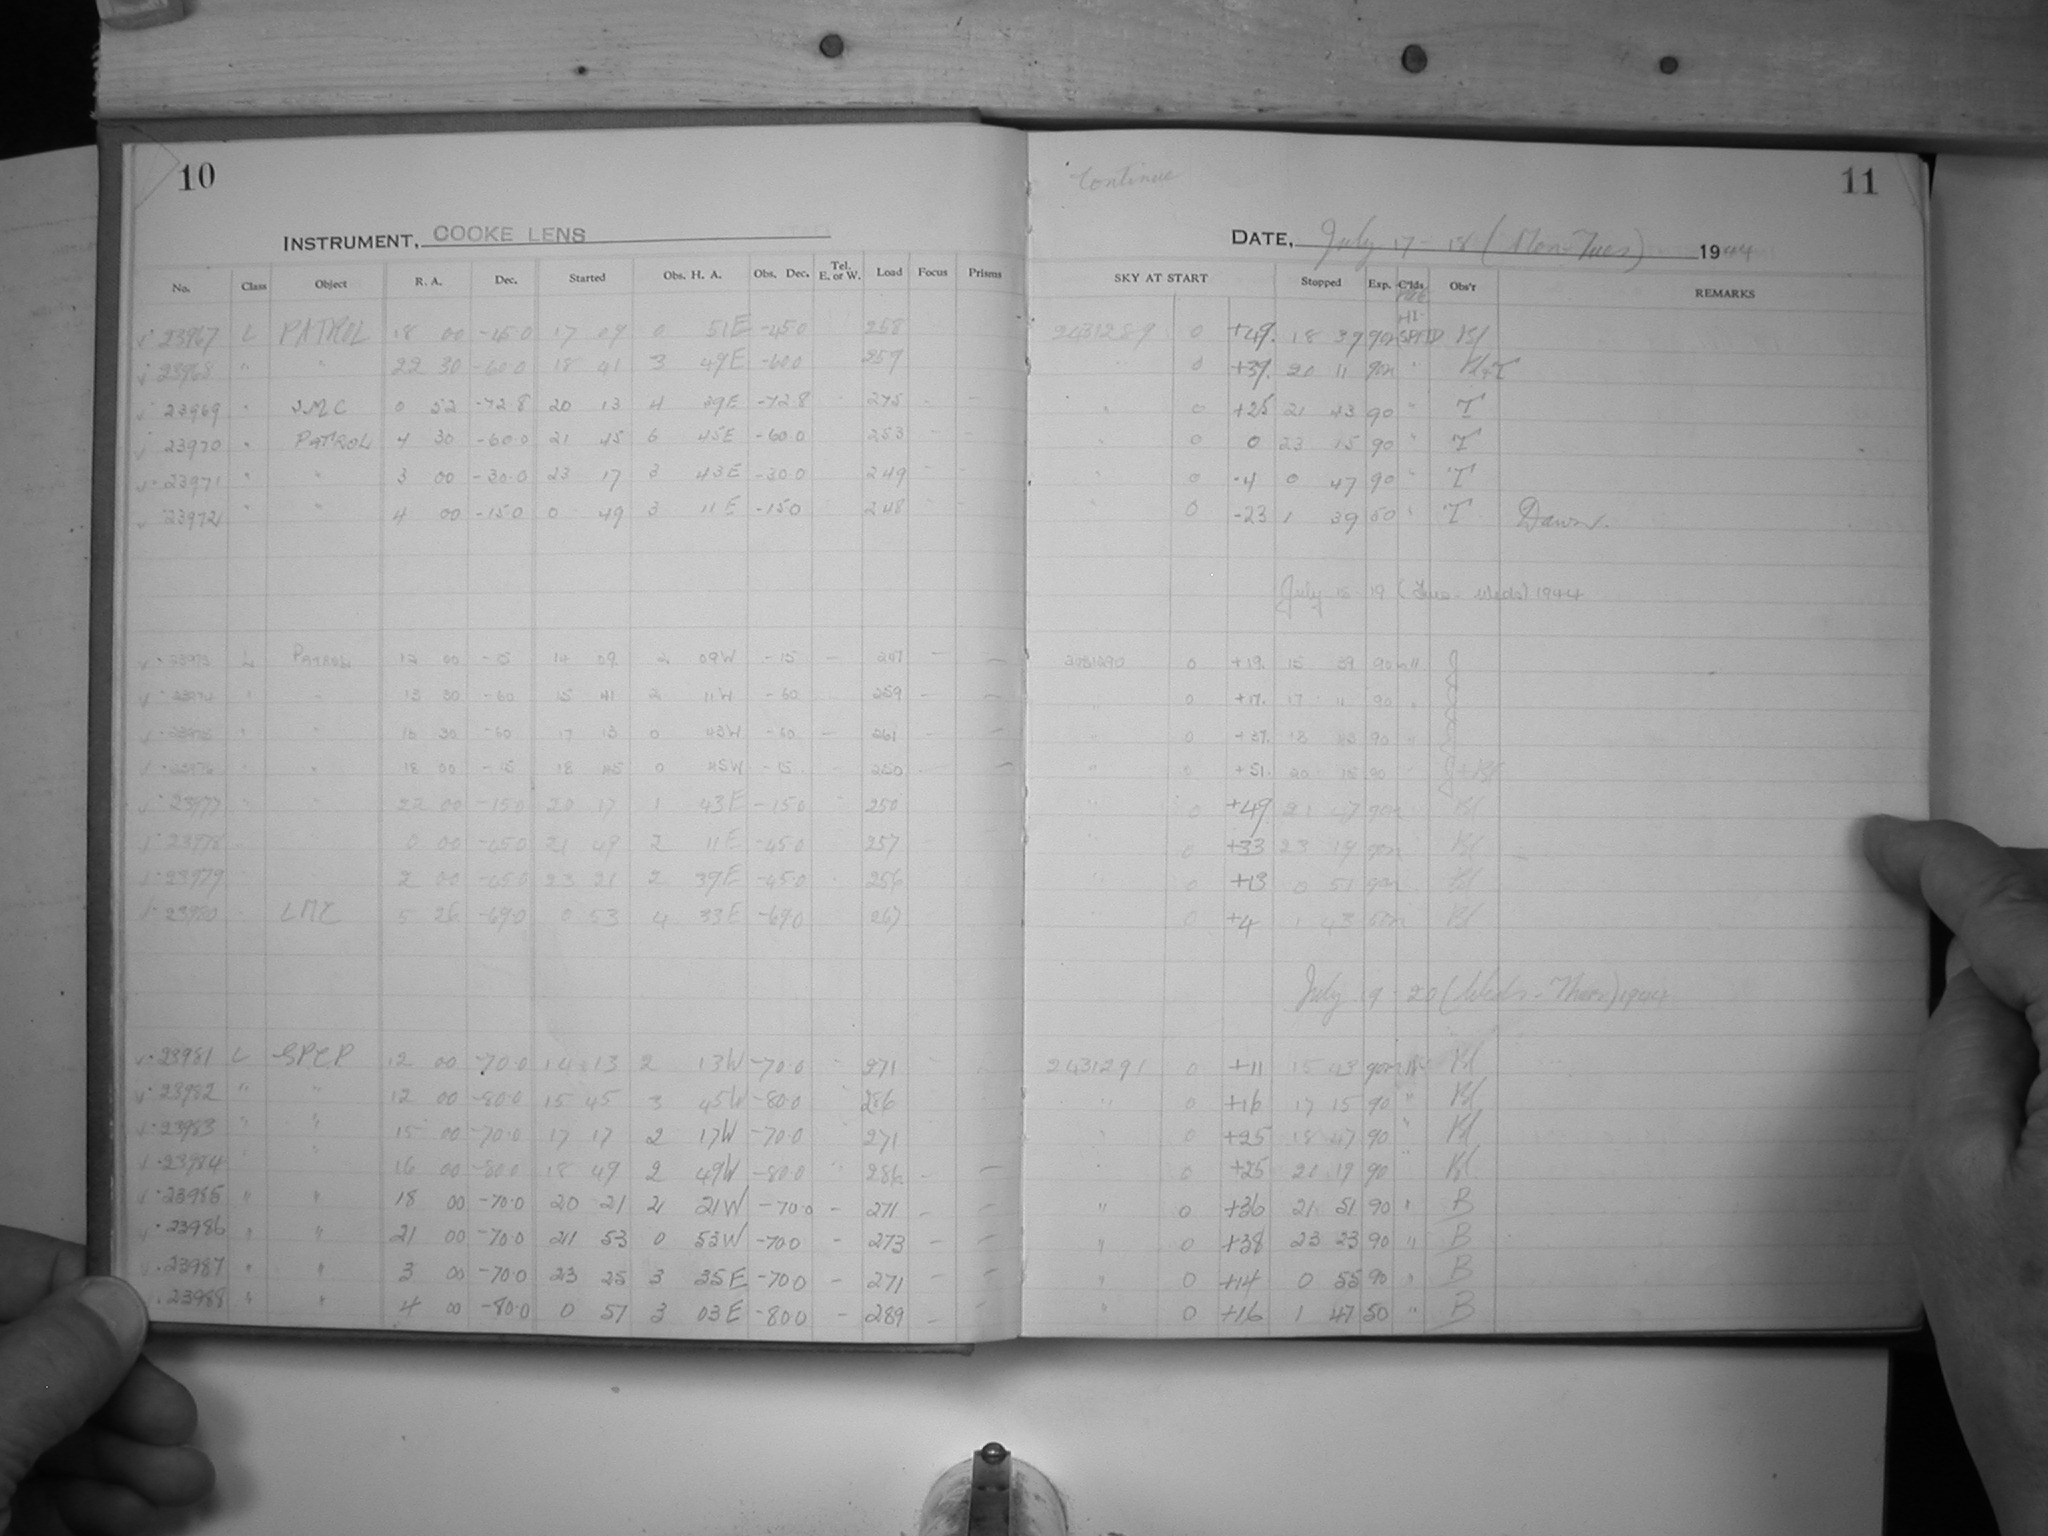 10
Continue
11
INSTRUMENT, COOKE LENS
DATE, July 17 - 18 (Mon-Tues) 1944
No. Class Object R. A. Dec. Started Obs. H. A. Obs. Dec. Tel. E. or W. Load Focus Prisms SKY AT START Stopped Exp. C'lds Obs'r REMARKS
23967 L PATROL 18 00 -45.0 17 09 0 51E -45.0 258 2431289 0 +49. 18 39 90m HI-SPEED Bl
23968 " " 22 30 -60.0 18 41 3 49E -60.0 259 0 +39. 20 11 90m " Bl+T
23969 " SMC 0 52 -72.8 20 13 4 39E -72.8 275 - - " 0 +25 21 43 90 " T
23970 " PATROL 4 30 -60.0 21 45 6 45E -60.0 253 - - " 0 0 23 15 90 " T
23971 " " 3 00 -30.0 23 17 3 43E -30.0 249 - - " 0 -4 0 47 90 " T
23972 " " 4 00 -15.0 0 49 3 11E -15.0 248 " 0 -23 1 39 50 " T Dawn.
July 18 19 (Tues - Weds) 1944
23973 L PATROL 12 00 -15 14 09 2 09W -15 - 247 - - 2431290 0 +19. 15 39 90m " J
23974 " " 13 30 -60 15 41 2 11W -60 259 - - " 0 +17. 17 11 90 " J
23975 " " 16 30 -60 17 13 0 43W -60 - 261 - - " 0 +37. 18 43 90 " J
23976 " " 18 00 -15 18 45 0 45W -15 - 250 - " 0 +51. 20 15 90 J+Bl
23977 " " 22 00 -15.0 20 17 1 43E -15.0 250 " 0 +49 21 47 90m Bl
23978 0 00 -45.0 21 49 2 11E -45.0 257 0 +33 23 19 90m Bl
23979 2 00 -45.0 23 21 2 39E -45.0 256 0 +13 0 51 90m Bl
23980 LMC 5 26 -69.0 0 53 4 33E -69.0 267 0 +4 1 43 50m Bl
July 19 - 20 (Weds - Thurs) 1944
23981 L SPCP 12 00 -70.0 14 13 2 13W -70.0 271 2431291 0 +11 15 43 90m Bl
23982 " " 12 00 -80.0 15 45 3 45W -80.0 286 " 0 +16 17 15 90 " Bl
23983 " " 15 00 -70.0 17 17 2 17W -70.0 271 " 0 +25 18 47 90 " Bl
23984 " " 16 00 -80.0 18 49 2 49W -80.0 286 - - 0 +25 20 19 90 " Bl
23985 " " 18 00 -70.0 20 21 2 21W -70.0 - 271 - - " 0 +36 21 51 90 " B
23986 " " 21 00 -70.0 21 53 0 53W -70.0 - 273 - - " 0 +38 23 23 90 " B
23987 " " 3 00 -70.0 23 25 3 35E -70.0 - 271 - - " 0 +14 0 55 90 " B
23988 " " 4 00 -80.0 0 57 3 03E -80.0 - 289 - - " 0 +16 1 47 50 " B